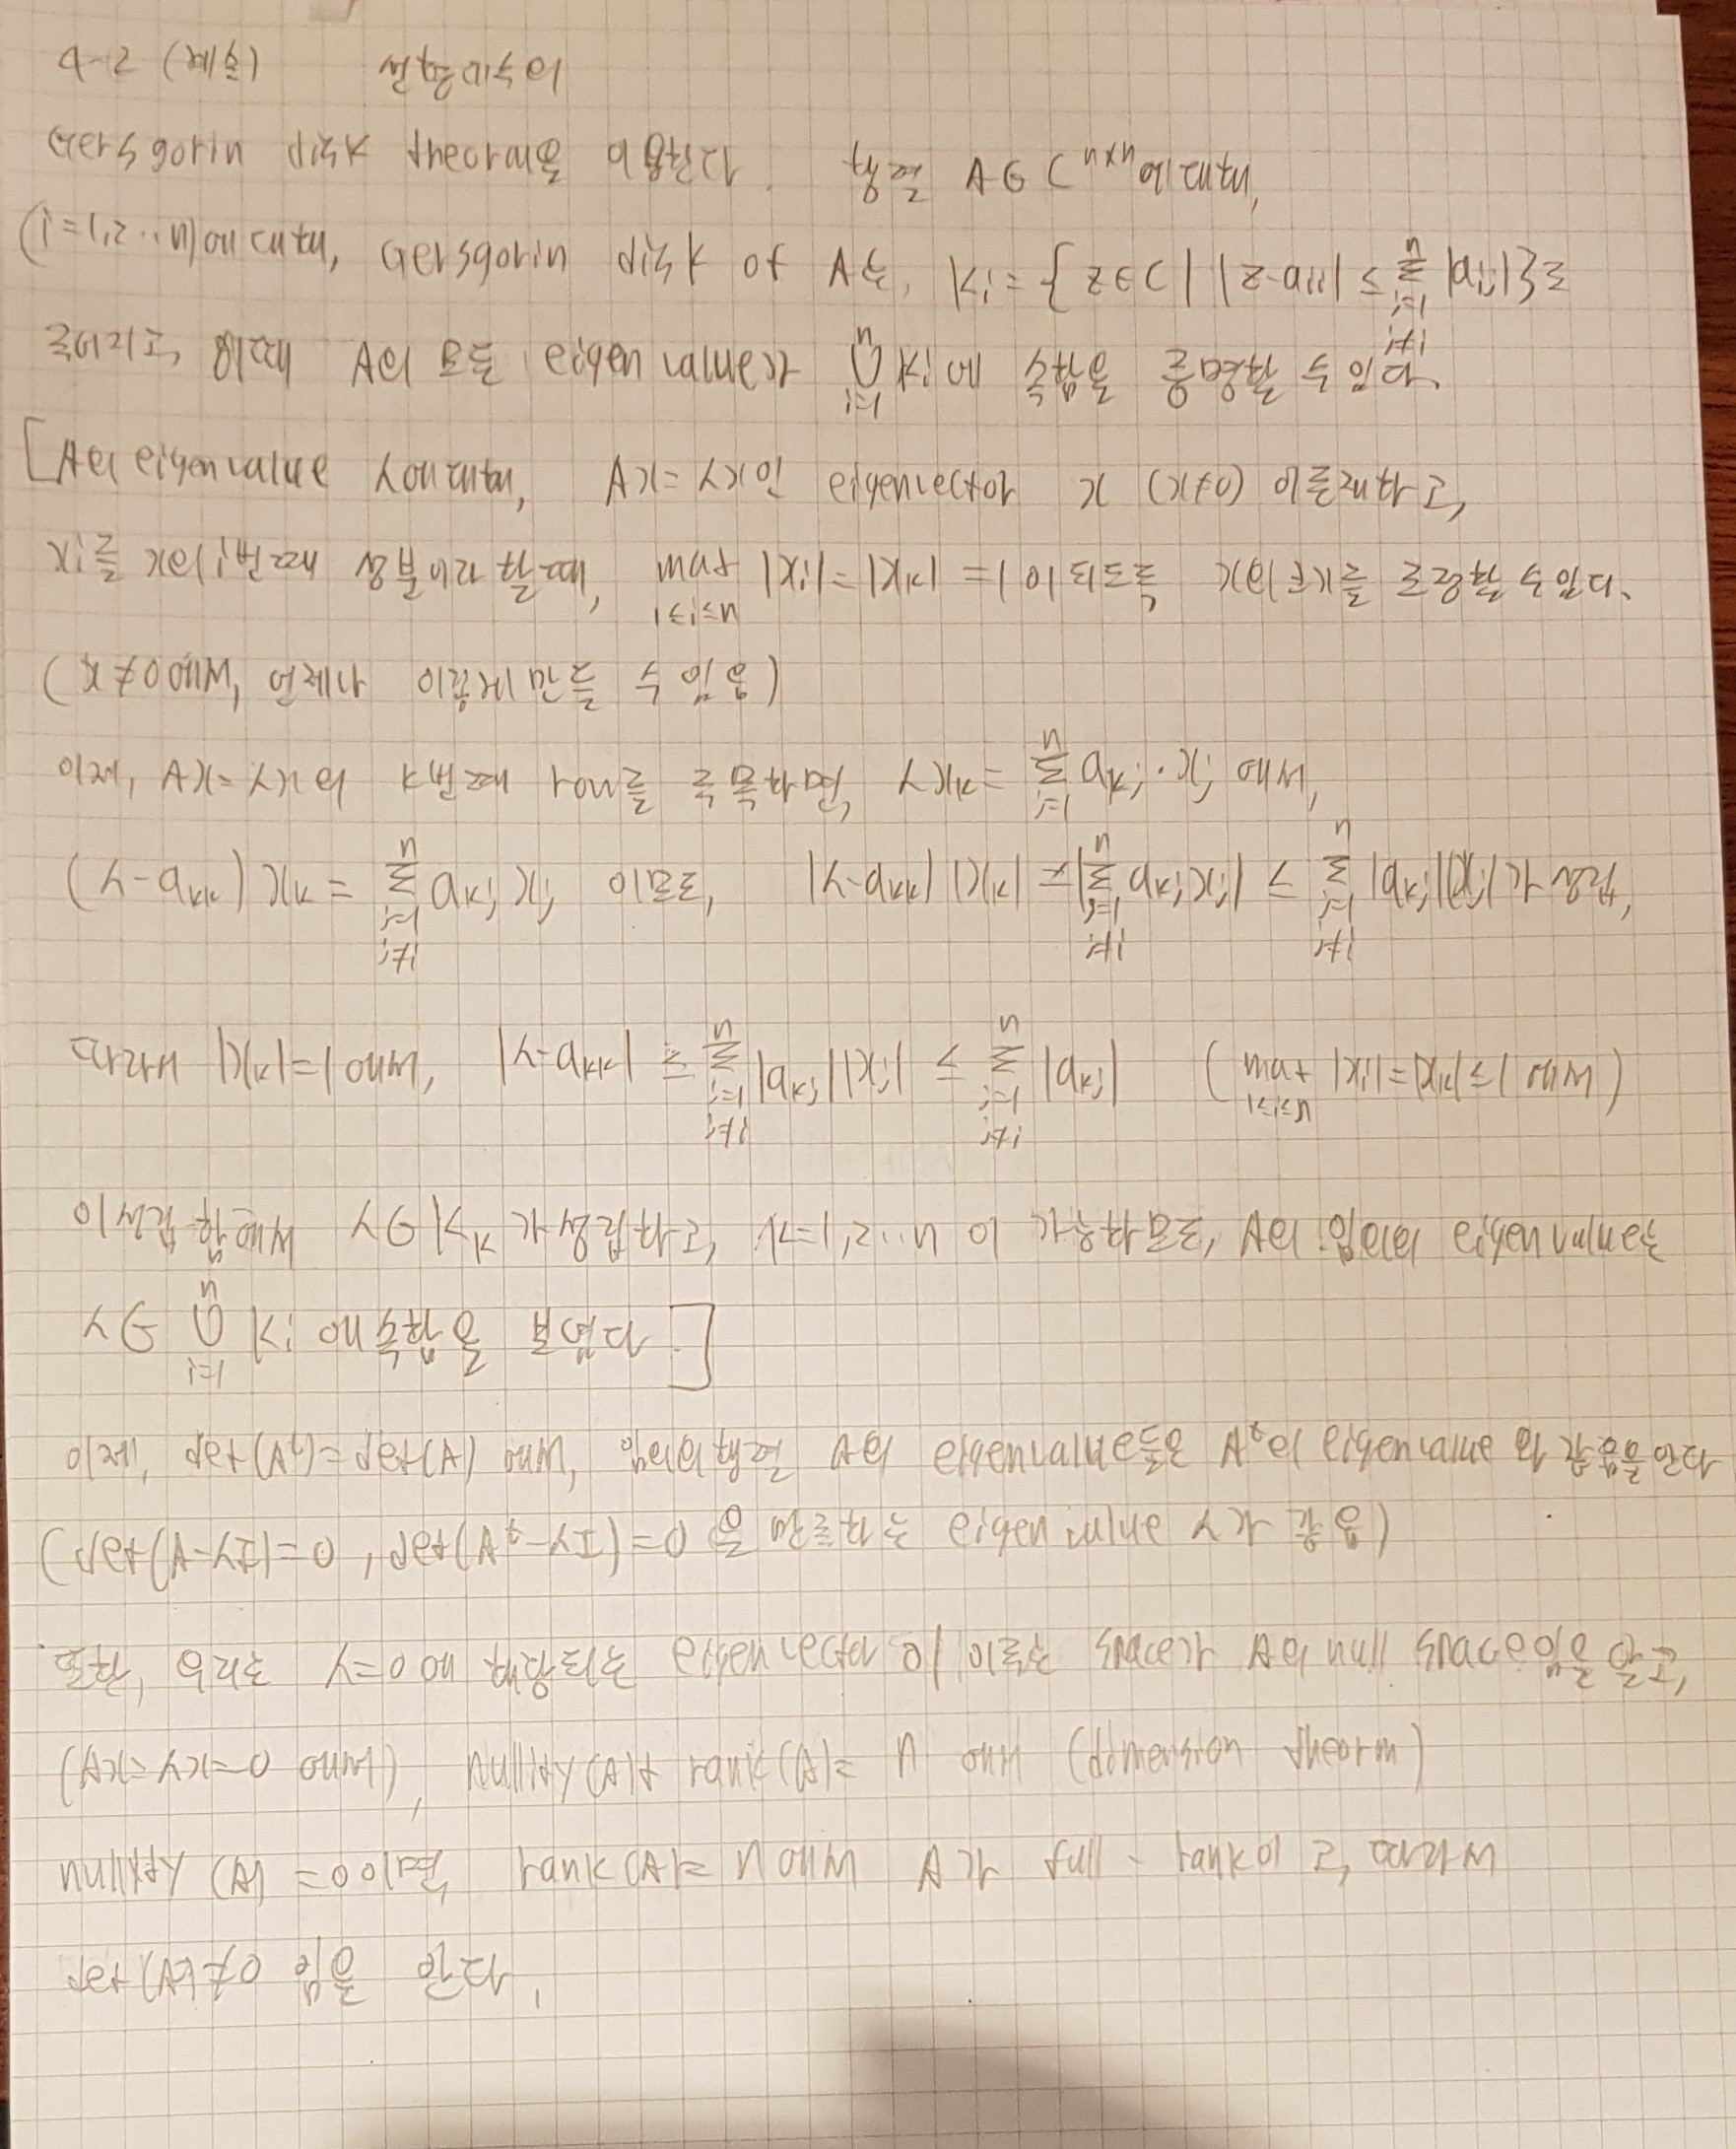 4-2 (계속)
Gersgorin disk theorem을 이용한다. 행렬 A∈C^{n×n}에 대해,
(i=1,2…n)에 대해, Gersgorin disk of A는, K_i = {z∈C | |z-a_{ii}| ≤ \sum_{j=1, j≠i}^{n} |a_{ij}|}로
주어지고, 이때 A의 모든 eigenvalue가 \bigcup_{i=1}^{n} K_i에 속함을 증명할 수 있다.
[A의 eigenvalue λ에 대해, Ax=λx인 eigenvector x (x≠0) 이 존재하고,
x_i를 x의 i번째 성분이라 할 때, max_{1≤i≤n} |x_i|=|x_k|=1이 되도록 x의 크기를 조정할 수 있다.
(x≠0에서, 언제나 이렇게 만들 수 있음)
이제, Ax=λx의 k번째 row를 주목하면, λx_k = \sum_{j=1}^{n} a_{kj}·x_j 에서,
(λ-a_{kk})x_k = \sum_{j=1, j≠i}^{n} a_{kj}x_j 이므로, |λ-a_{kk}||x_k| = |\sum_{j=1, j≠i}^{n} a_{kj}x_j| ≤ \sum_{j=1, j≠i}^{n} |a_{kj}||x_j|가 성립,
따라서 |x_k|=1에서, |λ-a_{kk}| ≤ \sum_{j=1, j≠i}^{n} |a_{kj}||x_j| ≤ \sum_{j=1, j≠i}^{n} |a_{kj}| (max_{1≤i≤n} |x_i|=|x_k|≤1에서)
이 성립함에서 λ∈K_k가 성립하고, k=1,2…n이 가능하므로, A의 임의의 eigenvalue는
λ∈\bigcup_{i=1}^{n} K_i에 속함을 보였다.]
이제, det(A^t)=det(A)에서, 임의의 행렬 A의 eigenvalue들은 A^t의 eigenvalue와 같음을 안다
(det(A-λI)=0, det(A^t-λI)=0을 만족하는 eigenvalue λ가 같음)
또한, 우리는 λ=0에 해당되는 eigenvector이 이루는 space가 A의 null space임을 알고,
(Ax=λx=0에서), nullity(A)+rank(A)=n에서 (dimension theorm)
nullity(A)=0이면, rank(A)=n에서 A가 full-rank이고, 따라서
det(A)≠0임을 안다.